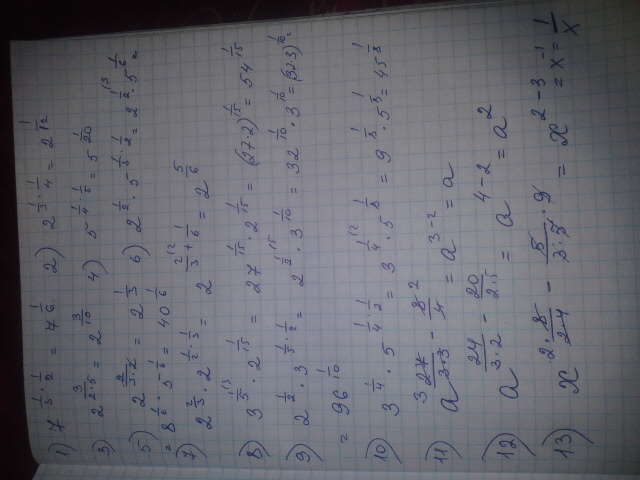 1) 7^{1/3 · 1/2} = 7^{1/6}   2) 2^{1/3 · 1/4} = 2^{1/12}
3) 2^{3/(2·5)} = 2^{3/10}   4) 5^{1/4 · 1/5} = 5^{1/20}
5) 2^{2/(3·2)} = 2^{1/3}   6) 2^{1/2} · 5^{1/3 · 1/2} = 2^{1/2 \3} · 5^{1/6} =
= 8^{1/6} · 5^{1/6} = 40^{1/6}
7) 2^{2/3} · 2^{1/2 · 1/3} = 2^{2/3 \2 + 1/6} = 2^{5/6}
8) 3^{1/5 \3} · 2^{1/15} = 27^{1/15} · 2^{1/15} = (27·2)^{1/15} = 54^{1/15}
9) 2^{1/2} · 3^{1/5 · 1/2} = 2^{1/2 \5} · 3^{1/10} = 32^{1/10} · 3^{1/10} = (32·3)^{1/10} =
= 96^{1/10}
10) 3^{1/4} · 5^{1/4 · 1/2} = 3^{1/4 \2} · 5^{1/8} = 9^{1/8} · 5^{1/8} = 45^{1/8}
11) a^{3 27/(3·3) - 8/4 2} = a^{3-2} = a
12) a^{24/(3·2) - 20/(2·5)} = a^{4-2} = a^2
13) x^{2·8/(2·4) - 5/(3·5)·9} = x^{2-3} = x^{-1} = 1/x